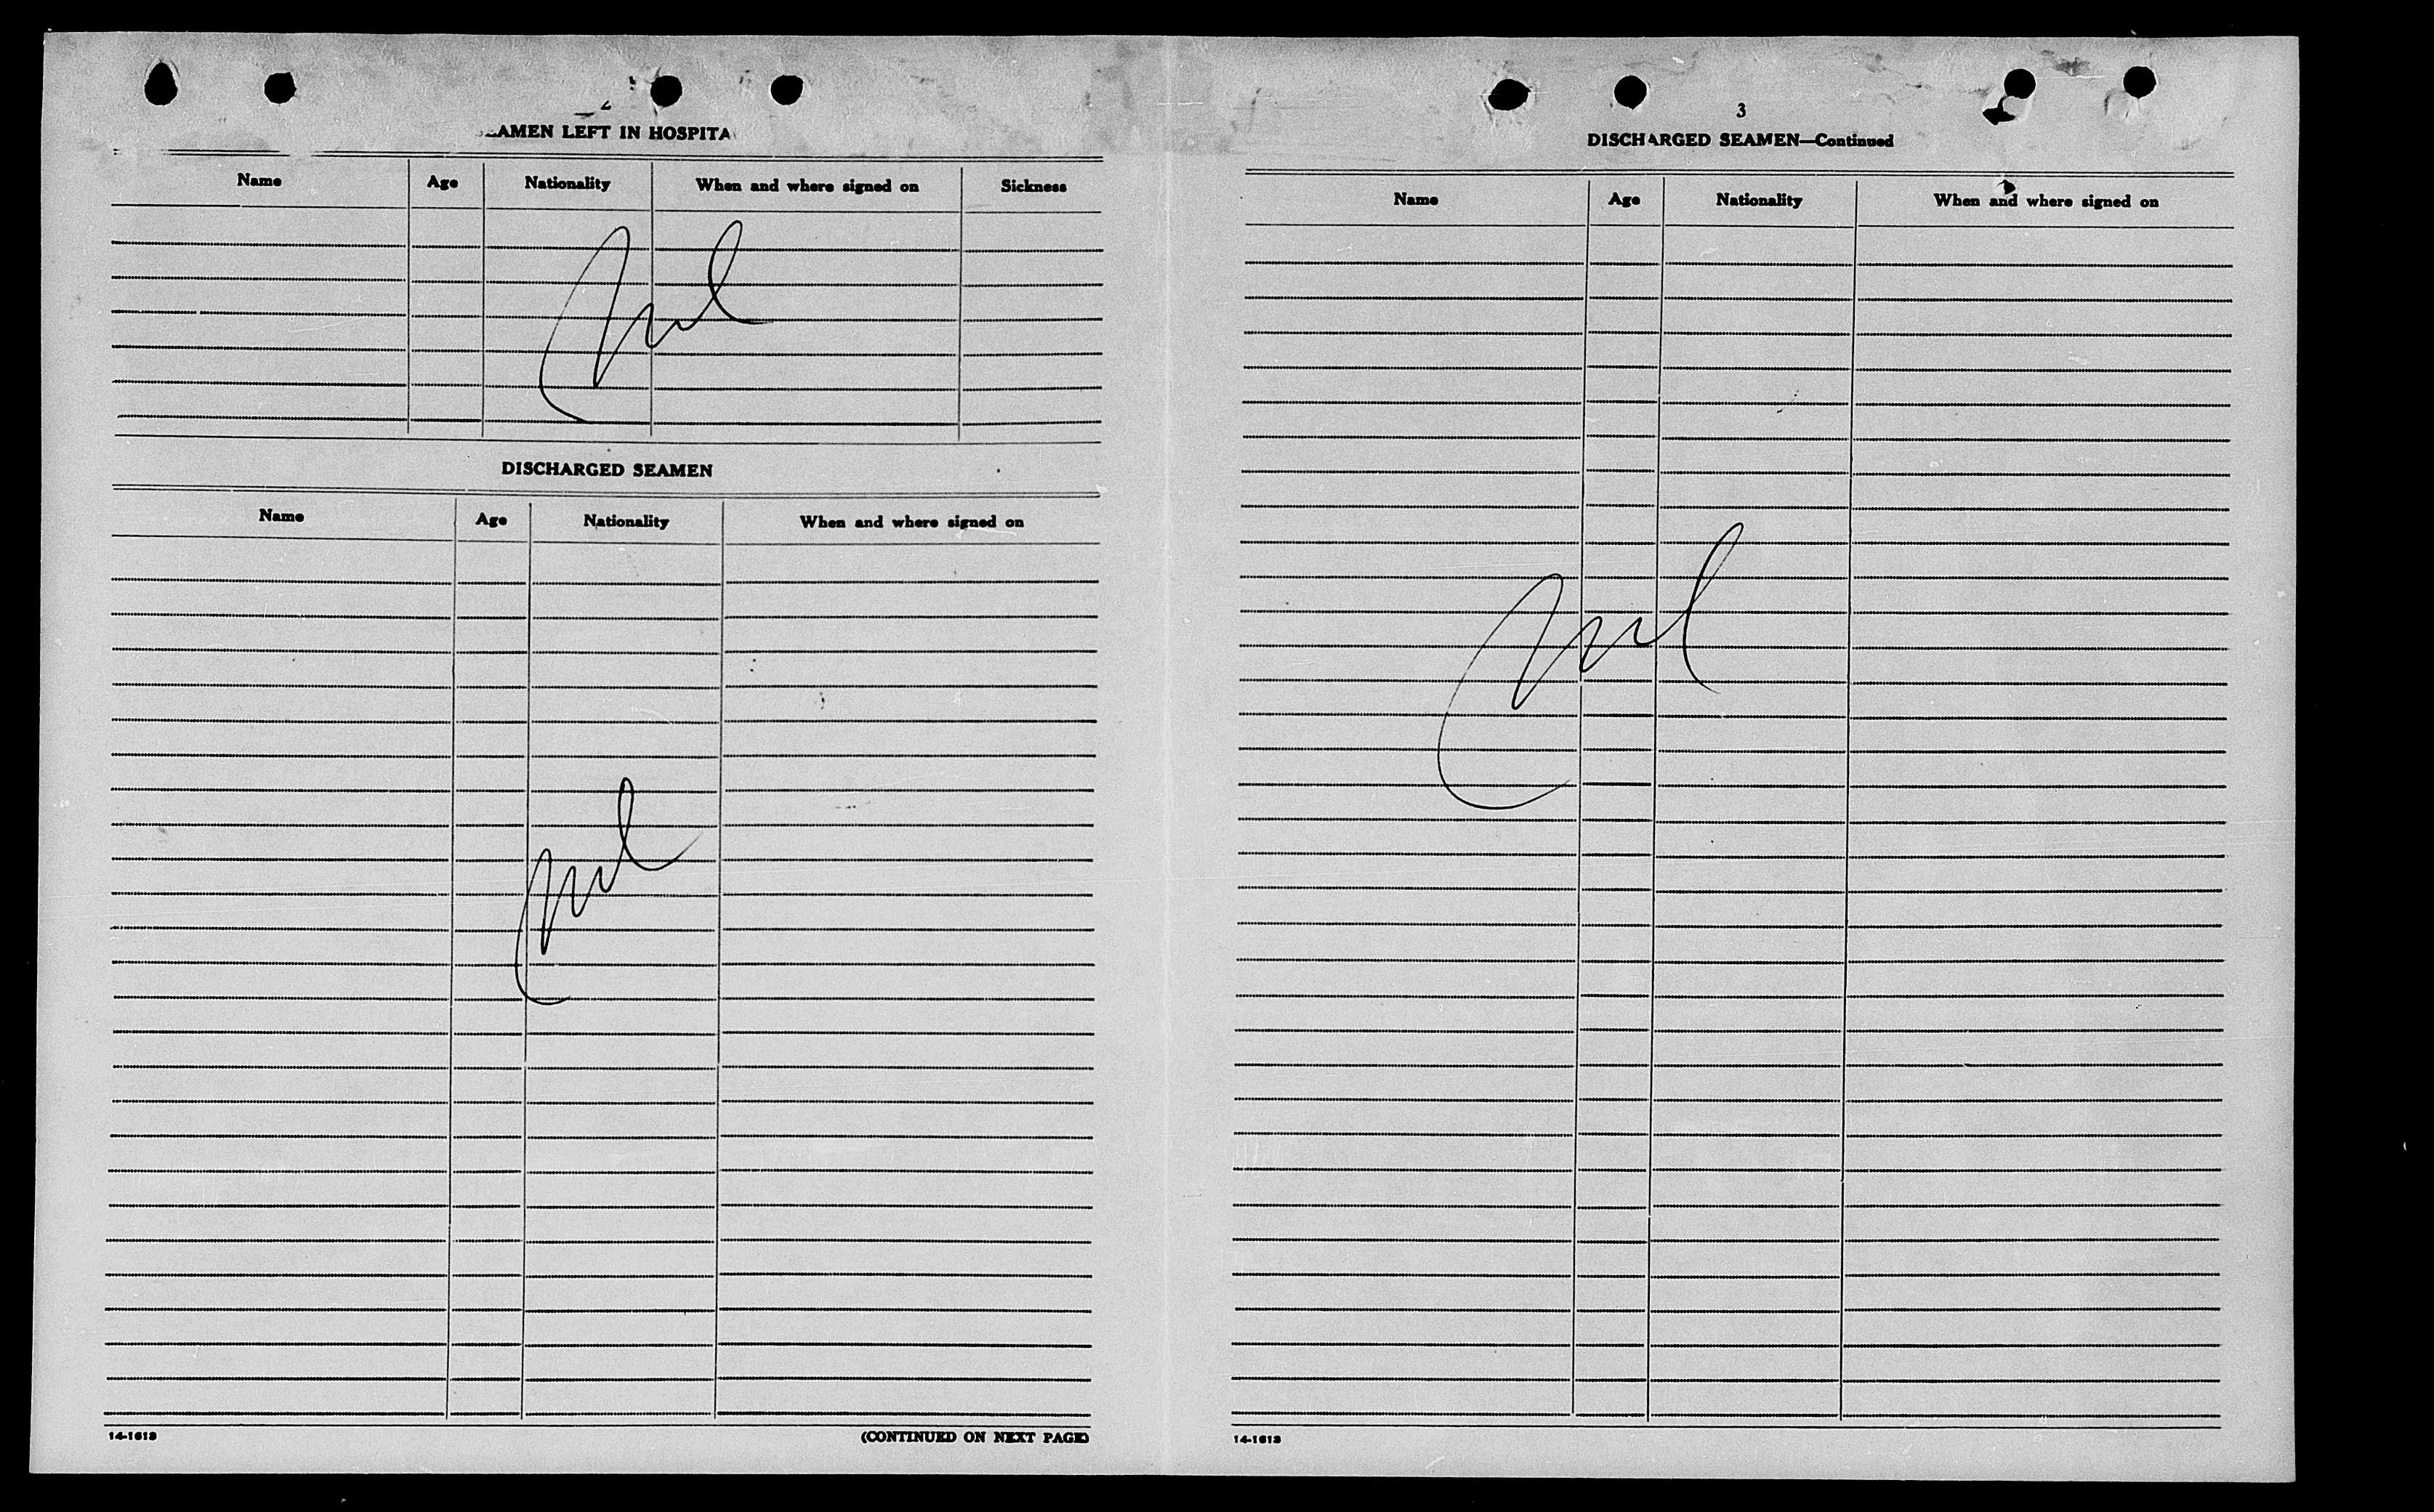 2
SEAMEN LEFT IN HOSPITAL
Name Age Nationality When and where signed on Sickness
Nil
DISCHARGED SEAMEN
Name Age Nationality When and where signed on
Nil
14-1613 (CONTINUED ON NEXT PAGE)
3
DISCHARGED SEAMEN—Continued
Name Age Nationality When and where signed on
Nil
14-1613